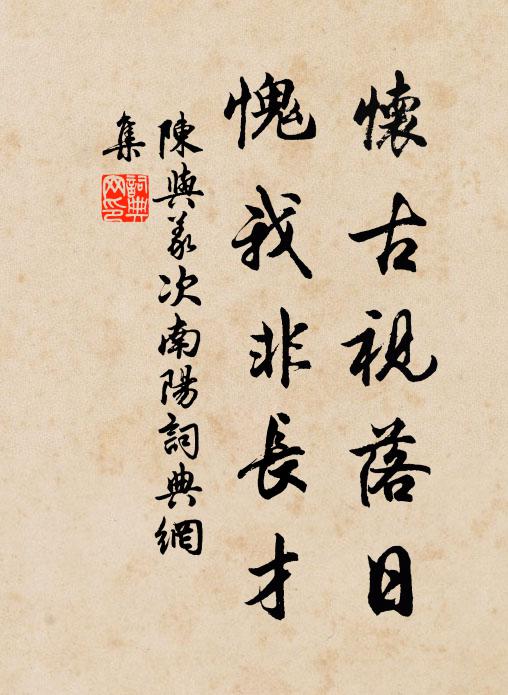 懷古視落日
愧我非長才
陳與義次南陽詞典網
集
詞典
网印